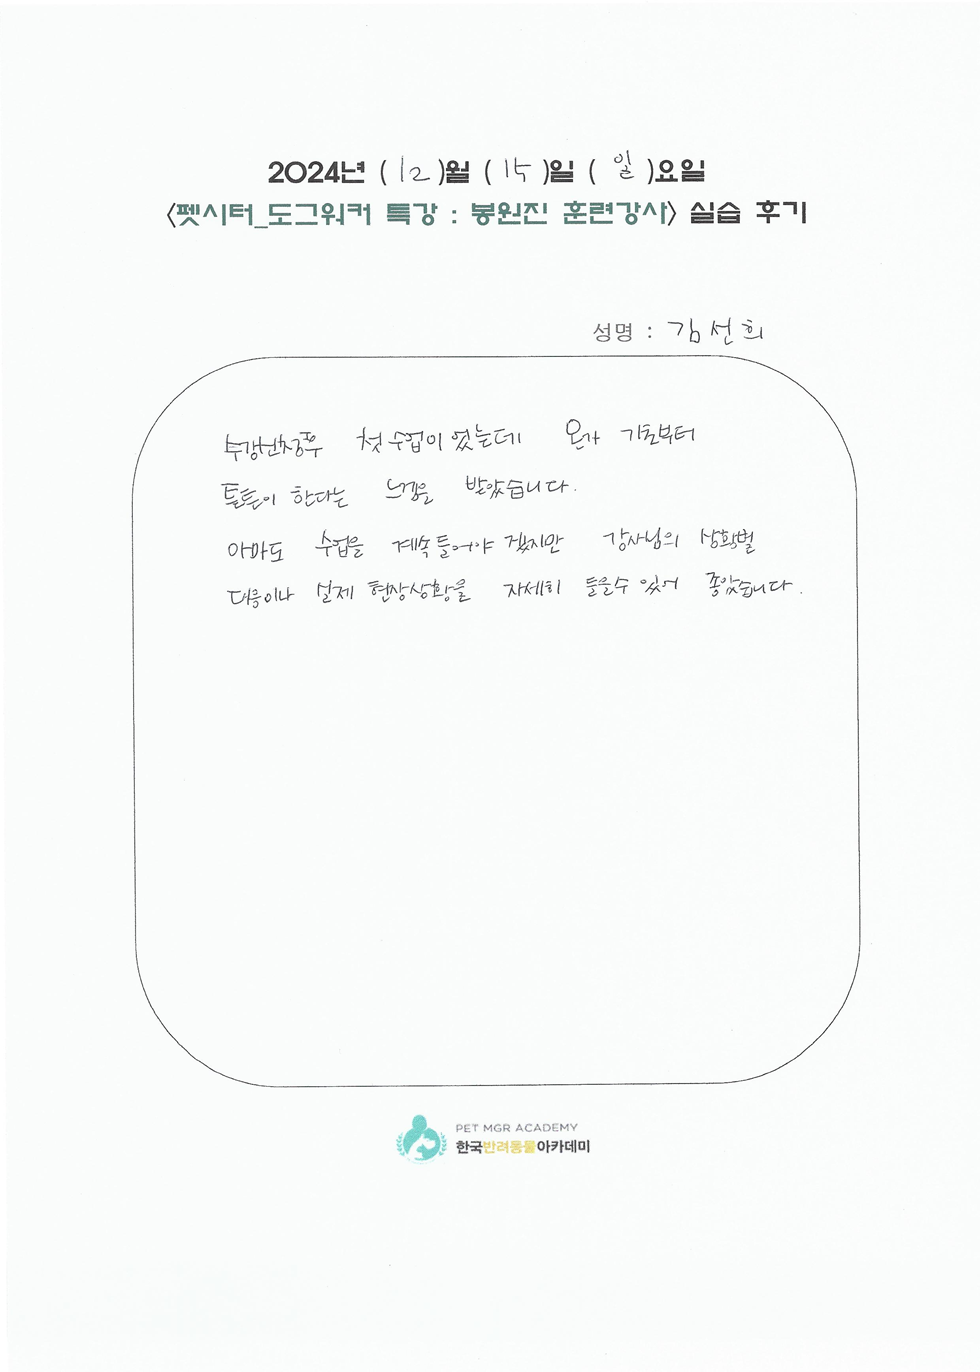 2024년 ( 12 )월 ( 15 )일 ( 일 )요일
<펫시터_도그워커 특강 : 봉원진 훈련강사> 실습 후기
성명 : 김선희
수강신청후 첫 수업이었는데 기초부터
튼튼이 한다는 느낌을 받았습니다.
아마도 수업을 계속 들어야 겠지만 강사님의 상황별
대응이나 실제 현장상황을 자세히 들을수 있어 좋았습니다.
PET MGR ACADEMY
한국반려동물아카데미